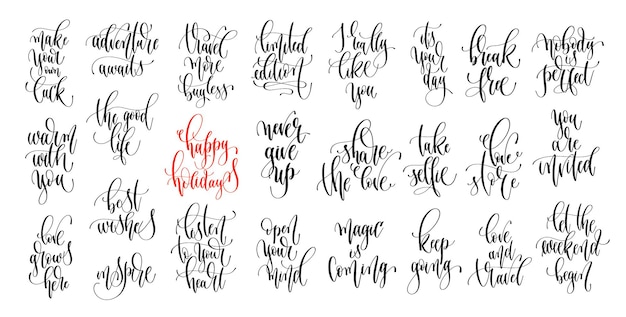 make
your
own
luck
adventure
awaits
travel
more
bugless
limited
edition
I really
like
you
it's
your
day
break
free
nobody
is
perfect
warm
with
you
the good
life
happy
holidays
never
give
up
share
the love
take
selfie
love
store
you
are
invited
love
grows
here
best
wishes
inspire
listen
to your
heart
open
your
mind
magic
is
coming
keep
going
love
and
travel
let the
weekend
begin